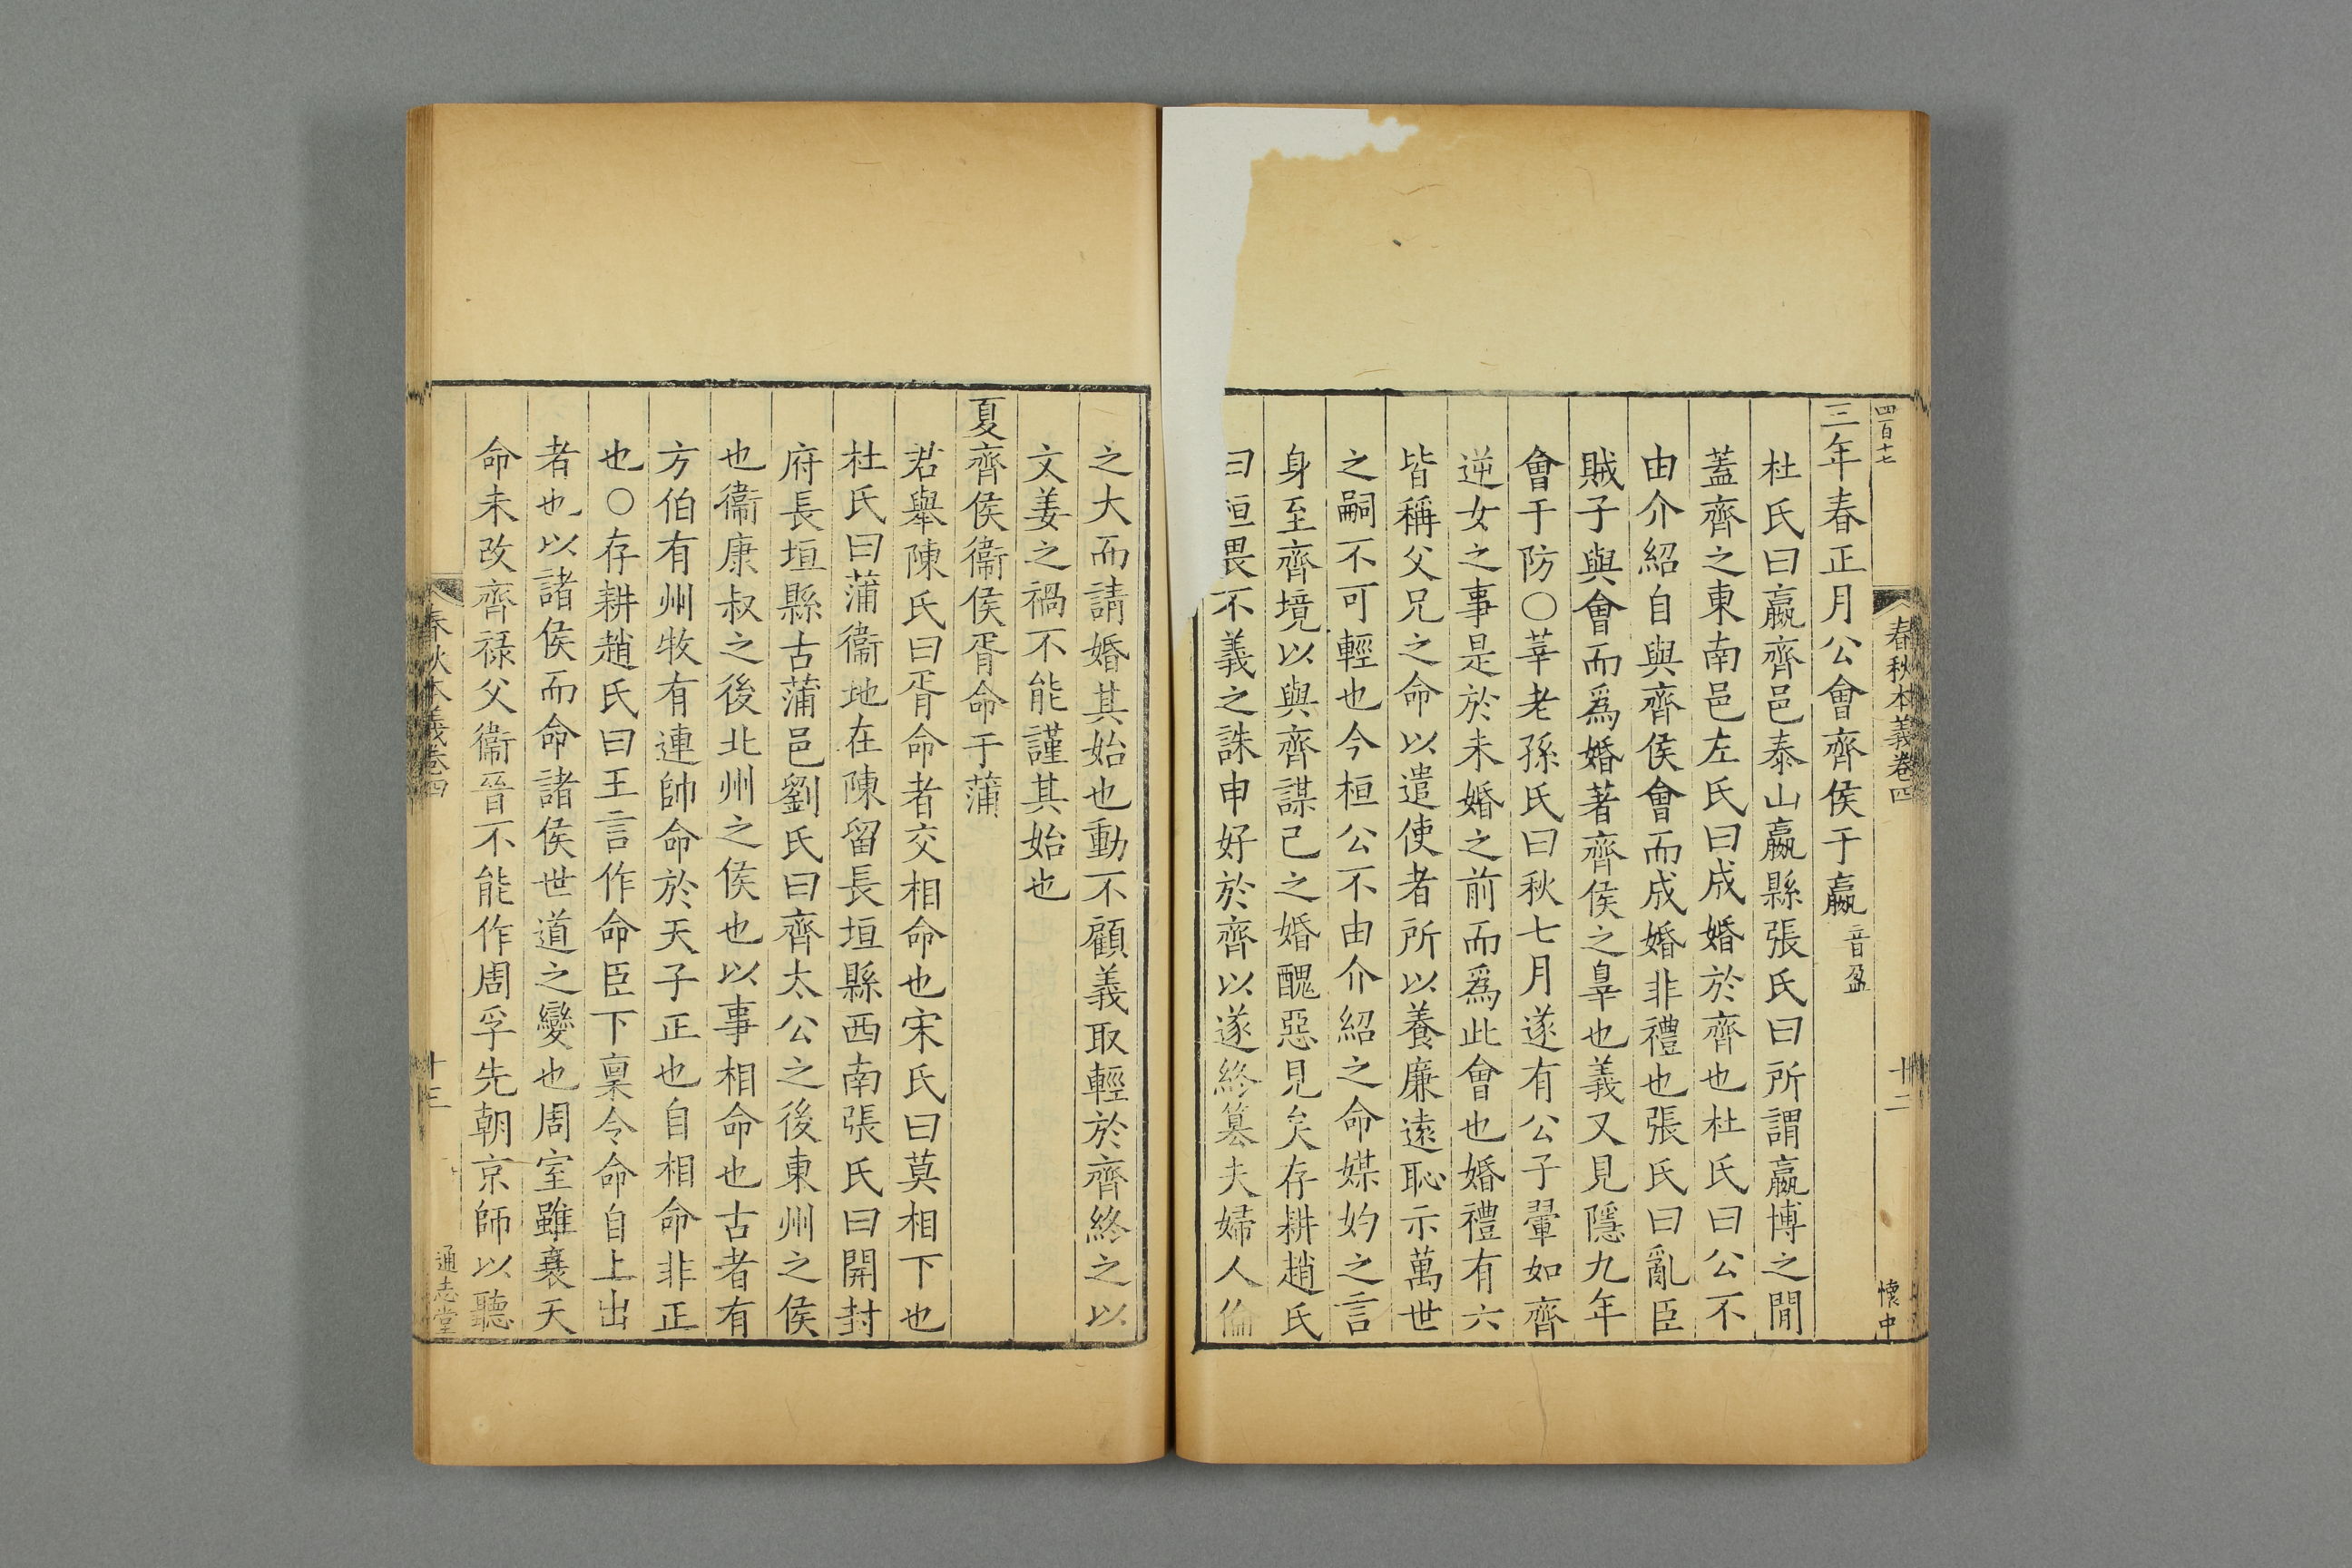 四百十七
春秋本義卷四
十二
懷中
三年春正月公會齊侯于嬴音盈
杜氏曰嬴齊邑泰山嬴縣張氏曰所謂嬴博之間
蓋齊之東南邑左氏曰成婚於齊也杜氏曰公不
由介紹自與齊侯會而成婚非禮也張氏曰亂臣
賊子與會而爲婚著齊侯之辠也義又見隱九年
會于防○莘老孫氏曰秋七月遂有公子翬如齊
逆女之事是於未婚之前而爲此會也婚禮有六
皆稱父兄之命以遣使者所以養廉遠恥示萬世
之嗣不可輕也今桓公不由介紹之命媒妁之言
身至齊境以與齊謀己之婚醜惡見矣存耕趙氏
曰桓畏不義之誅申好於齊以遂終篡夫婦人倫
之大而請婚其始也動不顧義取輕於齊終之以
文姜之禍不能謹其始也
夏齊侯衞侯胥命于蒲
君舉陳氏曰胥命者交相命也宋氏曰莫相下也
杜氏曰蒲衞地在陳留長垣縣西南張氏曰開封
府長垣縣古蒲邑劉氏曰齊太公之後東州之侯
也衞康叔之後北州之侯也以事相命也古者有
方伯有州牧有連帥命於天子正也自相命非正
也○存耕趙氏曰王言作命臣下稟令命自上出
者也以諸侯而命諸侯世道之變也周室雖衰天
命未改齊祿父衞晉不能作周孚先朝京師以聽
春秋本義卷四
十三
通志堂